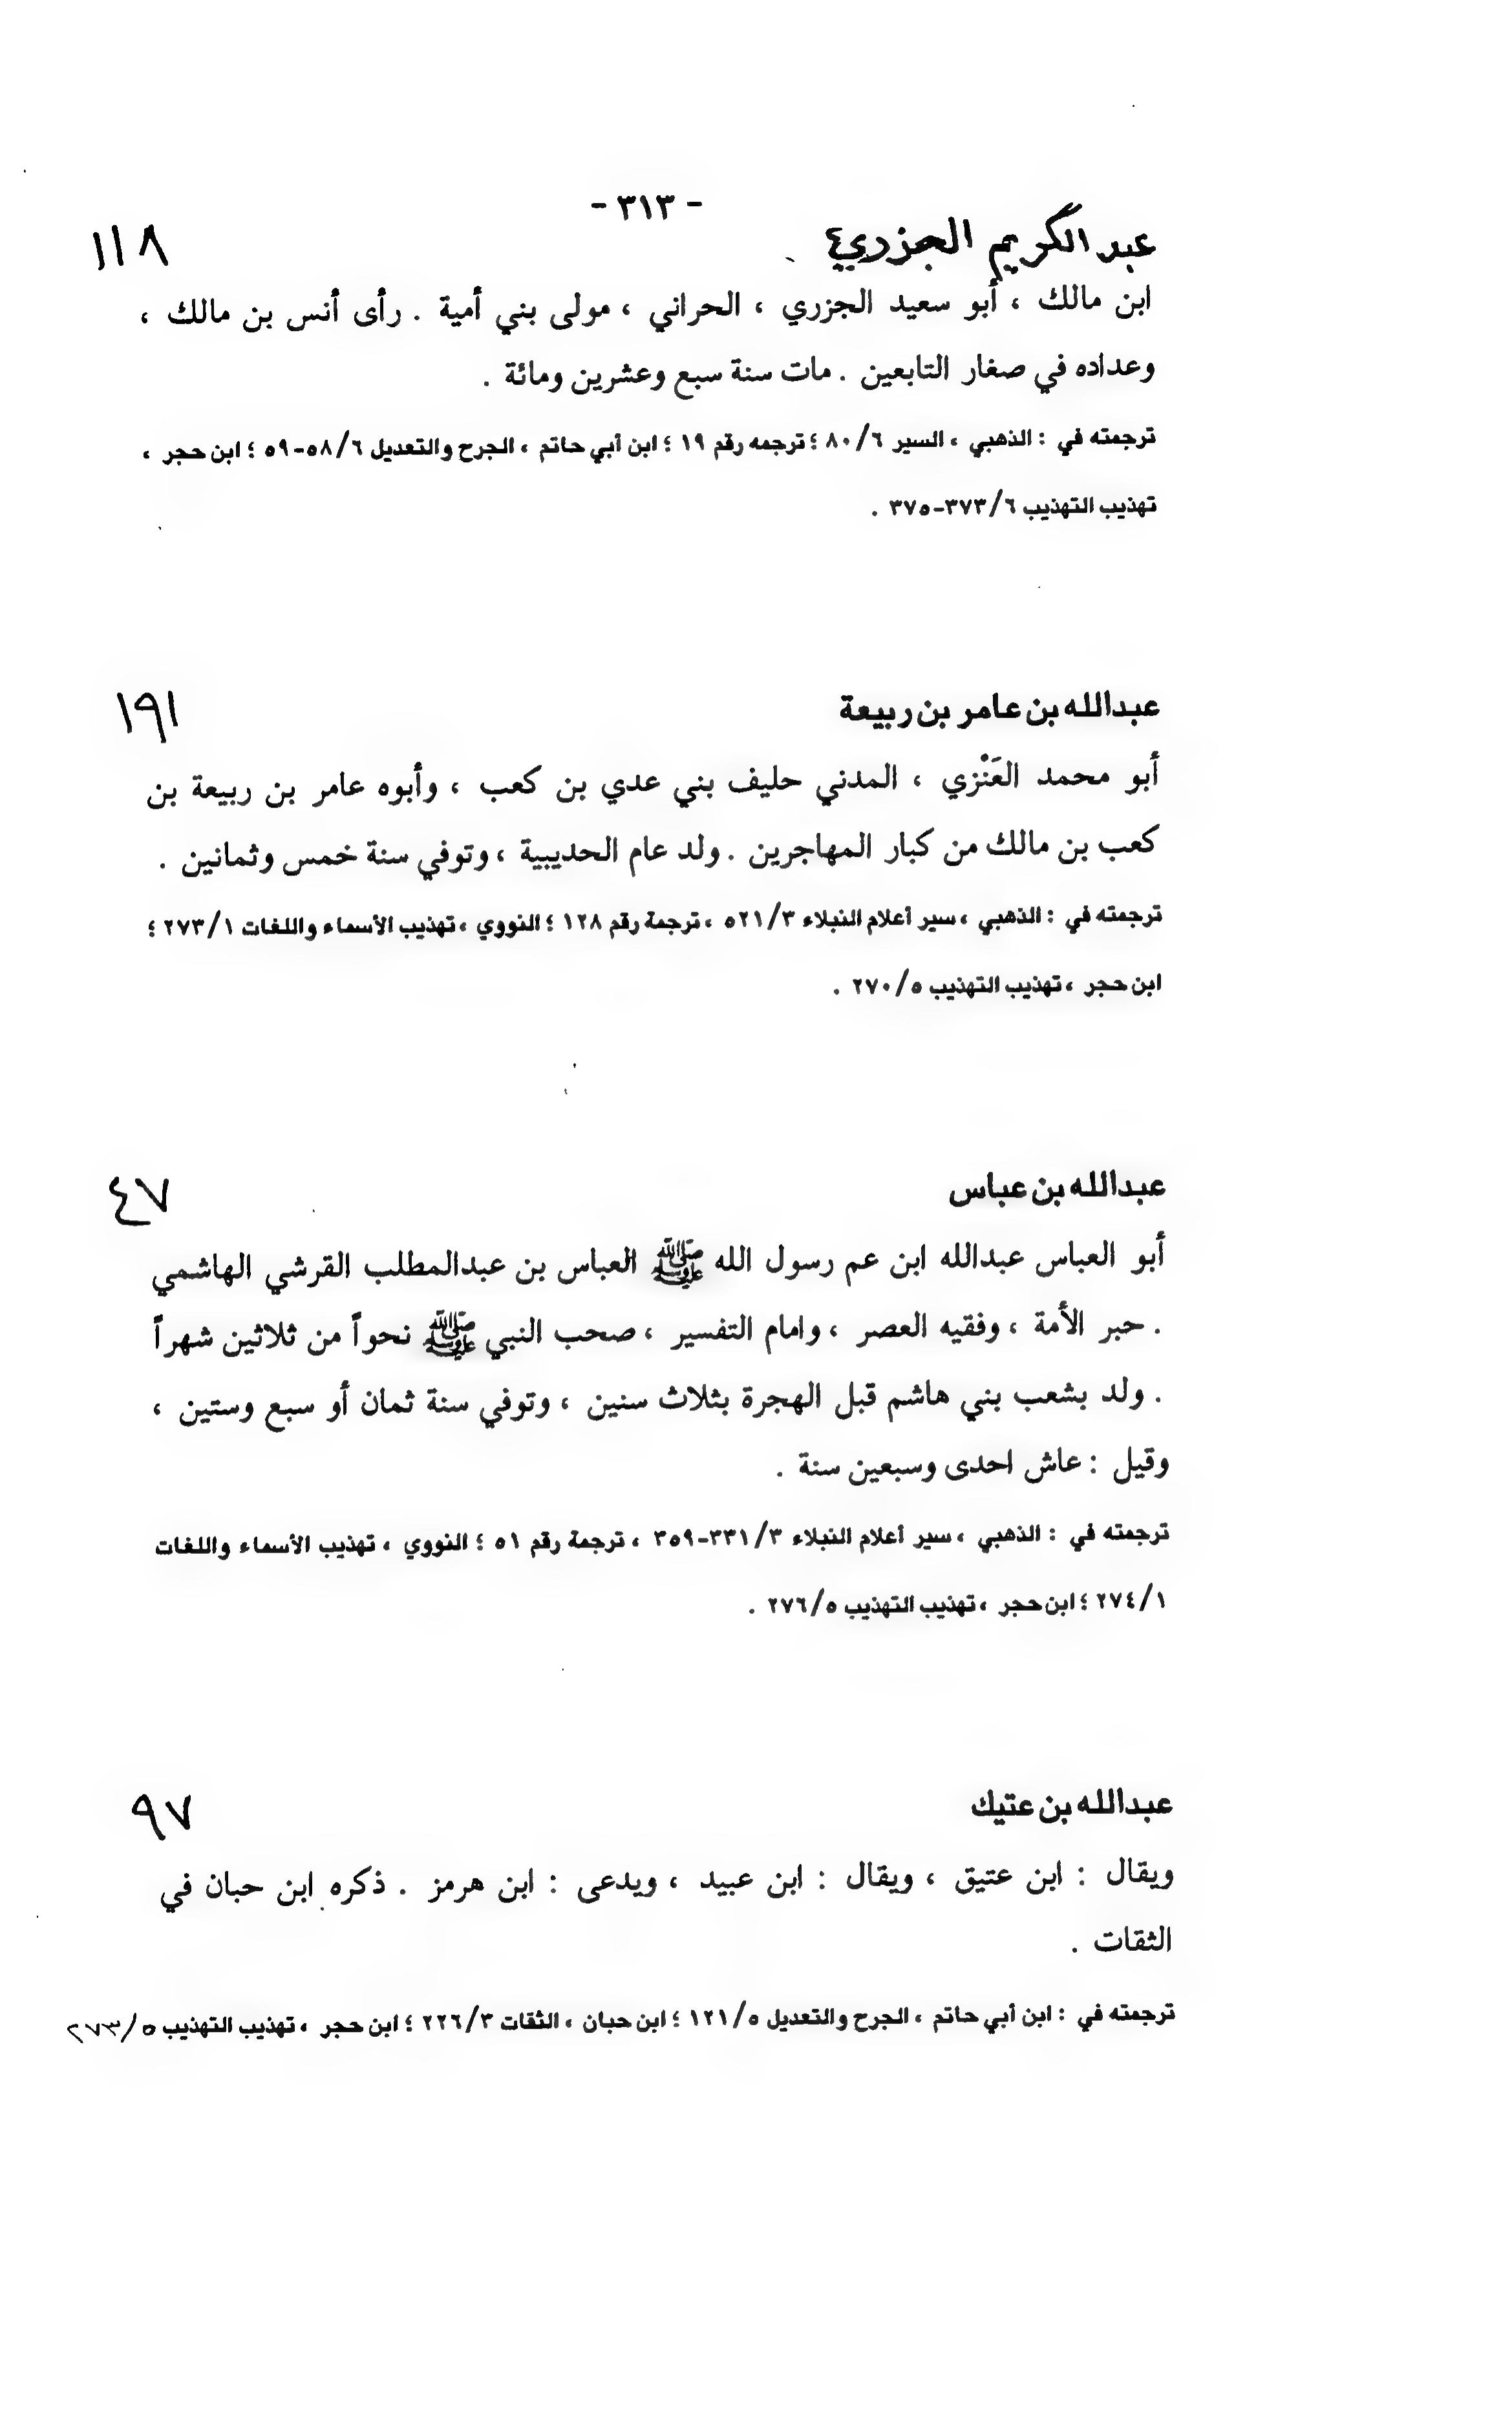 - ٣١٣ -
عبد الكريم الجزري ١١٨
ابن مالك ، أبو سعيد الجزري ، الحراني ، مولى بني أمية . رأى أنس بن مالك ،
وعداده في صغار التابعين . مات سنة سبع وعشرين ومائة .
ترجمته في : الذهبي ، السير ٨٠/٦ ؛ ترجمه رقم ١٩ ؛ ابن أبي حاتم ، الجرح والتعديل ٥٨/٦-٥٩ ؛ ابن حجر ،
تهذيب التهذيب ٣٧٣/٦-٣٧٥ .
عبدالله بن عامر بن ربيعة ١٩١
أبو محمد العَنْزي ، المدني حليف بني عدي بن كعب ، وأبوه عامر بن ربيعة بن
كعب بن مالك من كبار المهاجرين . ولد عام الحديبية ، وتوفي سنة خمس وثمانين .
ترجمته في : الذهبي ، سير أعلام النبلاء ٥٢١/٣ ، ترجمة رقم ١٢٨ ؛ النووي ، تهذيب الأسماء واللغات ٢٧٣/١ ؛
ابن حجر ، تهذيب التهذيب ٢٧٠/٥ .
عبدالله بن عباس ٤٧
أبو العباس عبدالله ابن عم رسول الله ﷺ العباس بن عبدالمطلب القرشي الهاشمي
. حبر الأمة ، وفقيه العصر ، وامام التفسير ، صحب النبي ﷺ نحواً من ثلاثين شهراً
. ولد بشعب بني هاشم قبل الهجرة بثلاث سنين ، وتوفي سنة ثمان أو سبع وستين ،
وقيل : عاش احدى وسبعين سنة .
ترجمته في : الذهبي ، سير أعلام النبلاء ٣٣١/٣-٣٥٩ ، ترجمة رقم ٥١ ؛ النووي ، تهذيب الأسماء واللغات
٢٧٤/١ ؛ ابن حجر ، تهذيب التهذيب ٢٧٦/٥ .
عبدالله بن عتيك ٩٧
ويقال : ابن عتيق ، ويقال : ابن عبيد ، ويدعى : ابن هرمز . ذكره ابن حبان في
الثقات .
ترجمته في : ابن أبي حاتم ، الجرح والتعديل ١٢١/٥ ؛ ابن حبان ، الثقات ٢٢٦/٣ ؛ ابن حجر ، تهذيب التهذيب ٢٧٣/٥